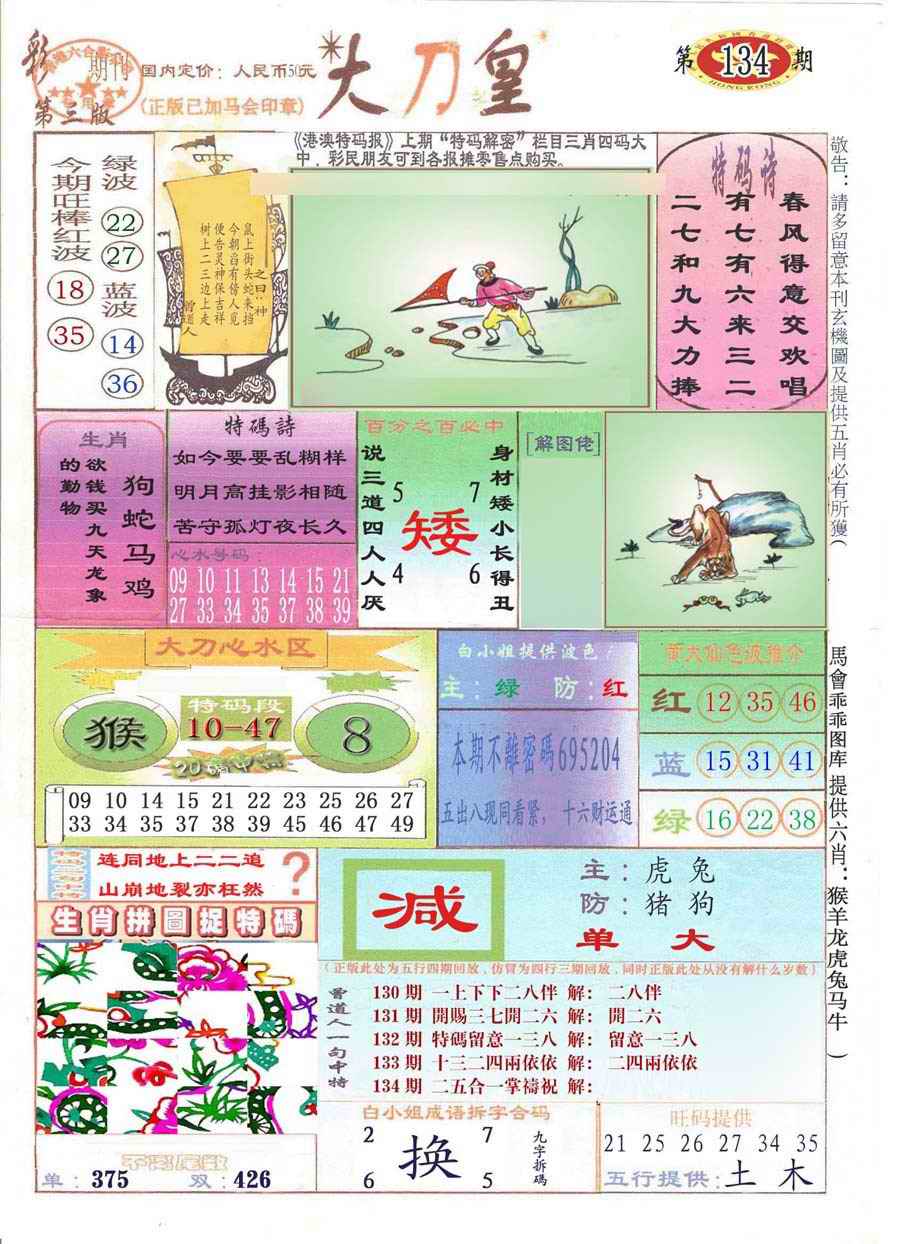 彩
期刊
第三版
国内定价：人民币50元
(正版已加马会印章)
大刀皇
第 134 期
HONG KONG
《港澳特码报》上期“特码解密”栏目三肖四码大
中，彩民朋友可到各报摊零售点购买。
今期旺棒红波
18
35
绿波
22
27
蓝波
14
36
之曰：神
鼠上街头蛇来挡
今朝沿有傍人见
便告灵神保吉祥
树上二三边上走
曾道人
特码诗
春风得意交欢唱
有七有六来三二
二七和九大力捧
敬告：請多留意本刊玄機圖及提供五肖必有所獲(
生肖
狗蛇马鸡
欲钱买九天龙象
的勤物
特碼詩
如今要要乱糊样
明月高挂影相随
苦守孤灯夜长久
心水号码：
09 10 11 13 14 15 21
27 33 34 35 37 38 39
百分之百必中
说三道四人人厌
5 7
矮
4 6
身材矮小长得丑
[解图佬]
大刀心水区
猴
特码段
10-47
20碼中特
8
09 10 14 15 21 22 23 25 26 27
33 34 35 37 38 39 45 46 47 49
白小姐提供波色
主：绿 防：红
本期不離密碼695204
五出八现同看紧，十六财运通
黄大仙色波推介
红 12 35 46
蓝 15 31 41
绿 16 22 38
馬會乖乖图库 提供六肖：猴羊龙虎兔马牛 )
连同地上二二追
山崩地裂亦枉然
?
生肖拼圖捉特碼
减
主：虎 兔
防：猪 狗
单 大
(正版此处为五行四期回放，仿冒为四行三期回放，同时正版此处从没有解什么岁数)
曾道人一句中特
130 期 一上下下二八伴 解： 二八伴
131 期 開賜三七開二六 解： 開二六
132 期 特碼留意一三八 解： 留意一三八
133 期 十三二四兩依依 解： 二四兩依依
134 期 二五合一掌禱祝 解：
单：375 双：426
白小姐成语拆字合码
2 7
换
6 5
九字拆碼
旺码提供
21 25 26 27 34 35
五行提供：土 木